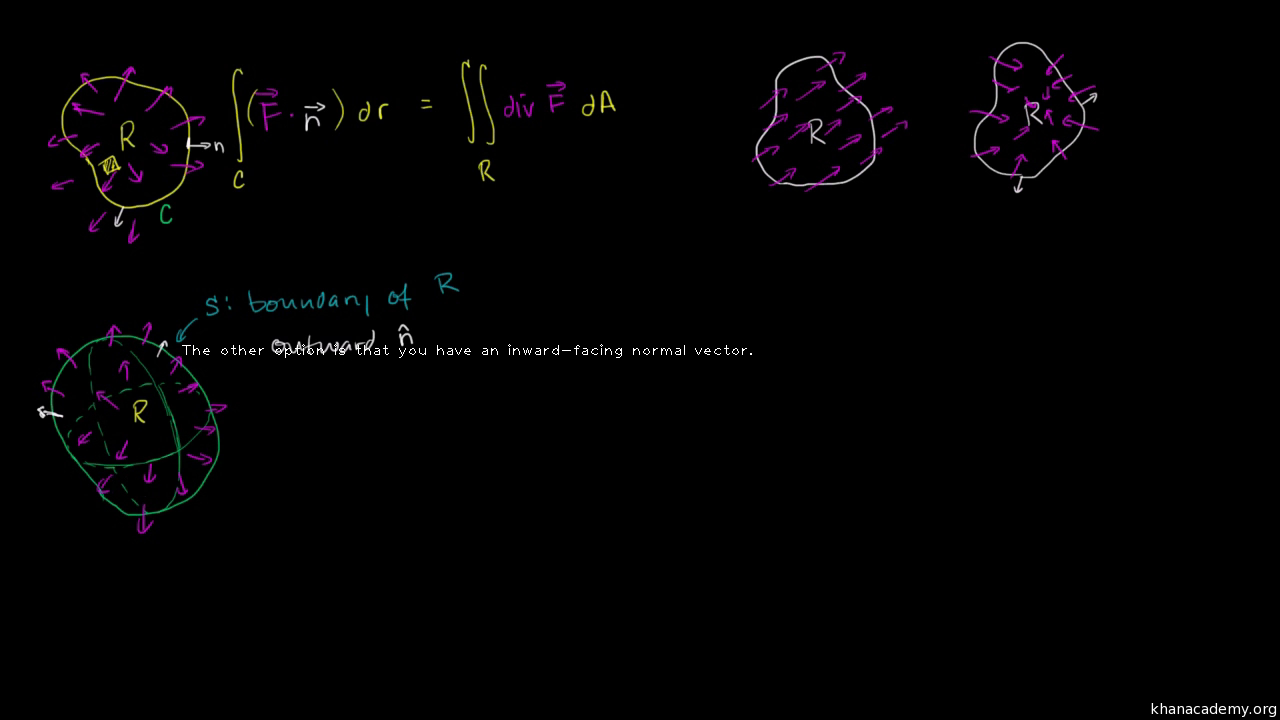 R
n
C
∫_C (F⃗ · n⃗) dr = ∬_R div F⃗ dA
R
R
S: boundary of R
outward n̂
The other option is that you have an inward-facing normal vector.
R
khanacademy.org